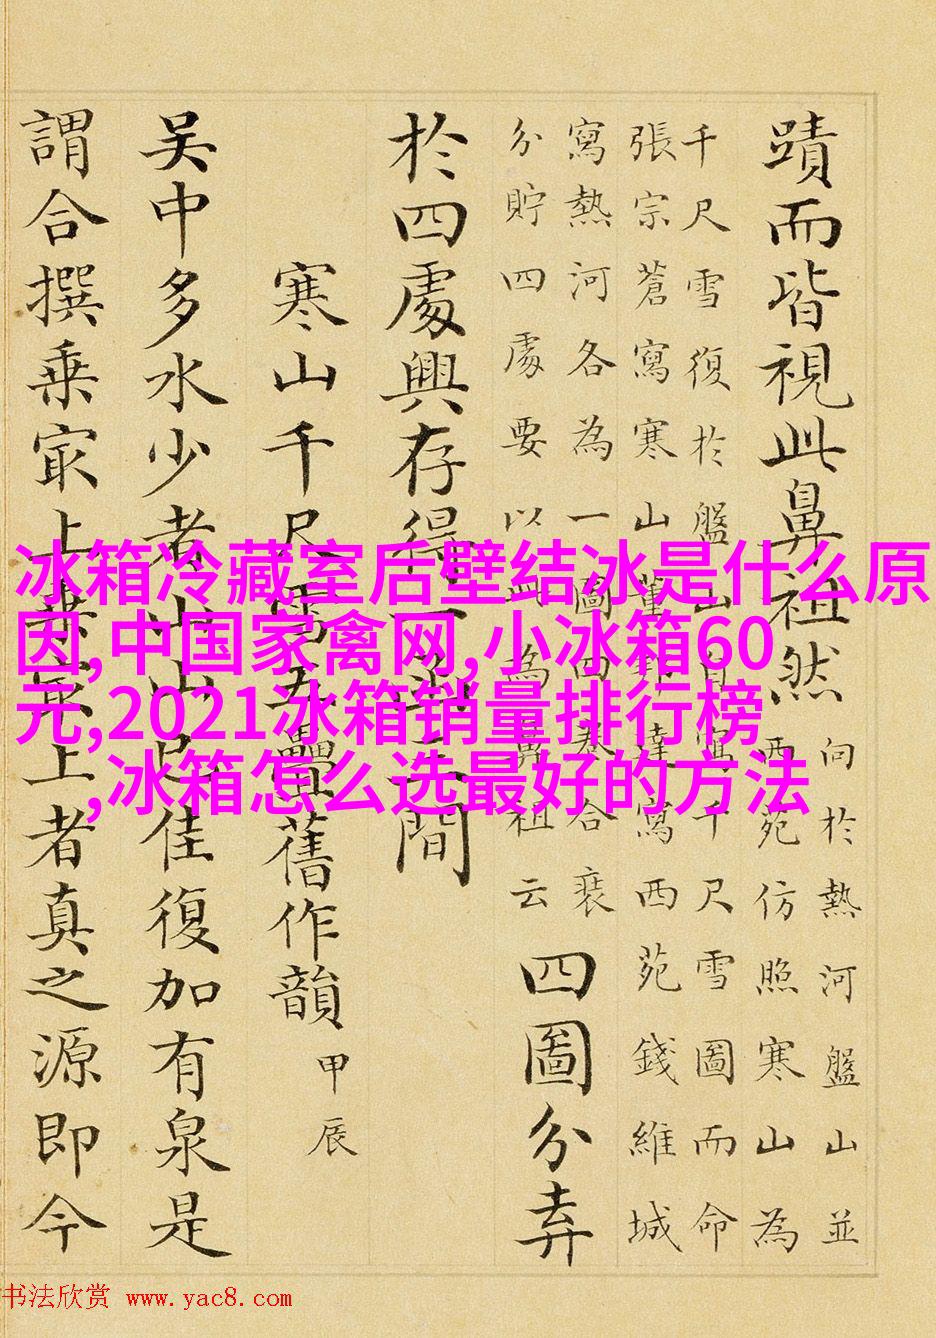 蹟而皆視此鼻祖然
向於熱河盤山並
西苑仿照寒山為
千尺雪復於盤山自寫千尺雪圖而命
張宗蒼寫寒山董邦達寫西苑錢維城
寫熱河各為一圖四卷合裝
分貯四處要以此為鼻祖云
四圖分弆
於四處興存得一間
寒山千尺雪五疊舊作韻
甲辰
吳中多水少者山山已佳復加有泉是
謂合撰乘冣上乘冣上者真之源即今
冰箱冷藏室后壁结冰是什么原
因,中国家禽网,小冰箱60
元,2021冰箱销量排行榜
,冰箱怎么选最好的方法
书法欣赏 www.yac8.com